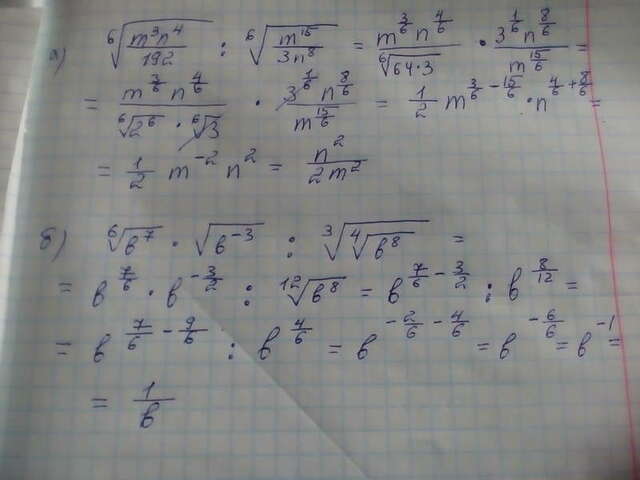 а) ⁶√(m³n⁴/192) : ⁶√(m¹⁵/3n⁸) = m^(3/6) n^(4/6) / ⁶√(64·3) · 3^(1/6) n^(8/6) / m^(15/6) =
= m^(3/6) n^(4/6) / (⁶√2⁶ · ⁶√3) · 3^(1/6) n^(8/6) / m^(15/6) = 1/2 m^(3/6 - 15/6) · n^(4/6 + 8/6) =
= 1/2 m⁻² n² = n²/2m²
б) ⁶√b⁷ · √b⁻³ : ³√(⁴√b⁸) =
= b^(7/6) · b^(-3/2) : ¹²√b⁸ = b^(7/6 - 3/2) : b^(8/12) =
= b^(7/6 - 9/6) : b^(4/6) = b^(-2/6 - 4/6) = b^(-6/6) = b⁻¹ =
= 1/b